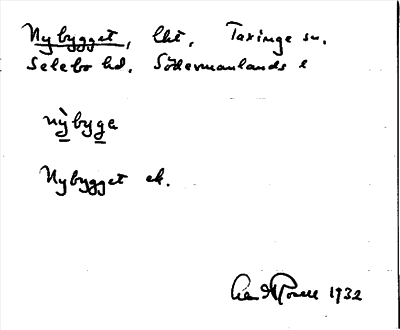 Nybygget, lht, Taxinge sn.
Selebo hd. Södermanlands l
nỳbyge
Nybygget ek.
1932